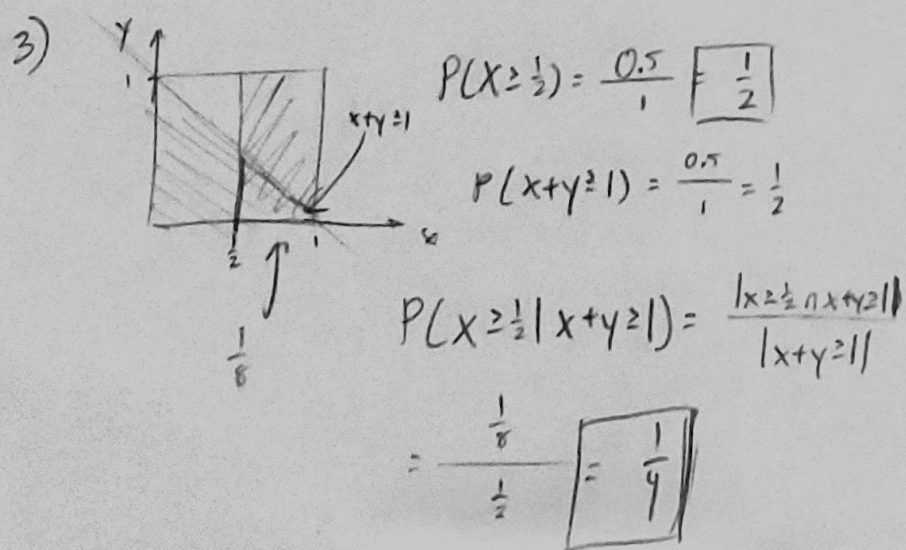 3)
y
1
x+y≥1
1/2
1
x
1/8
P(X≥1/2) = 0.5/1 = 1/2
P(x+y≥1) = 0.5/1 = 1/2
P(x≥1/2 | x+y≥1) = |x≥1/2 ∩ x+y≥1| / |x+y≥1|
= 1/8 / 1/2 = 1/4